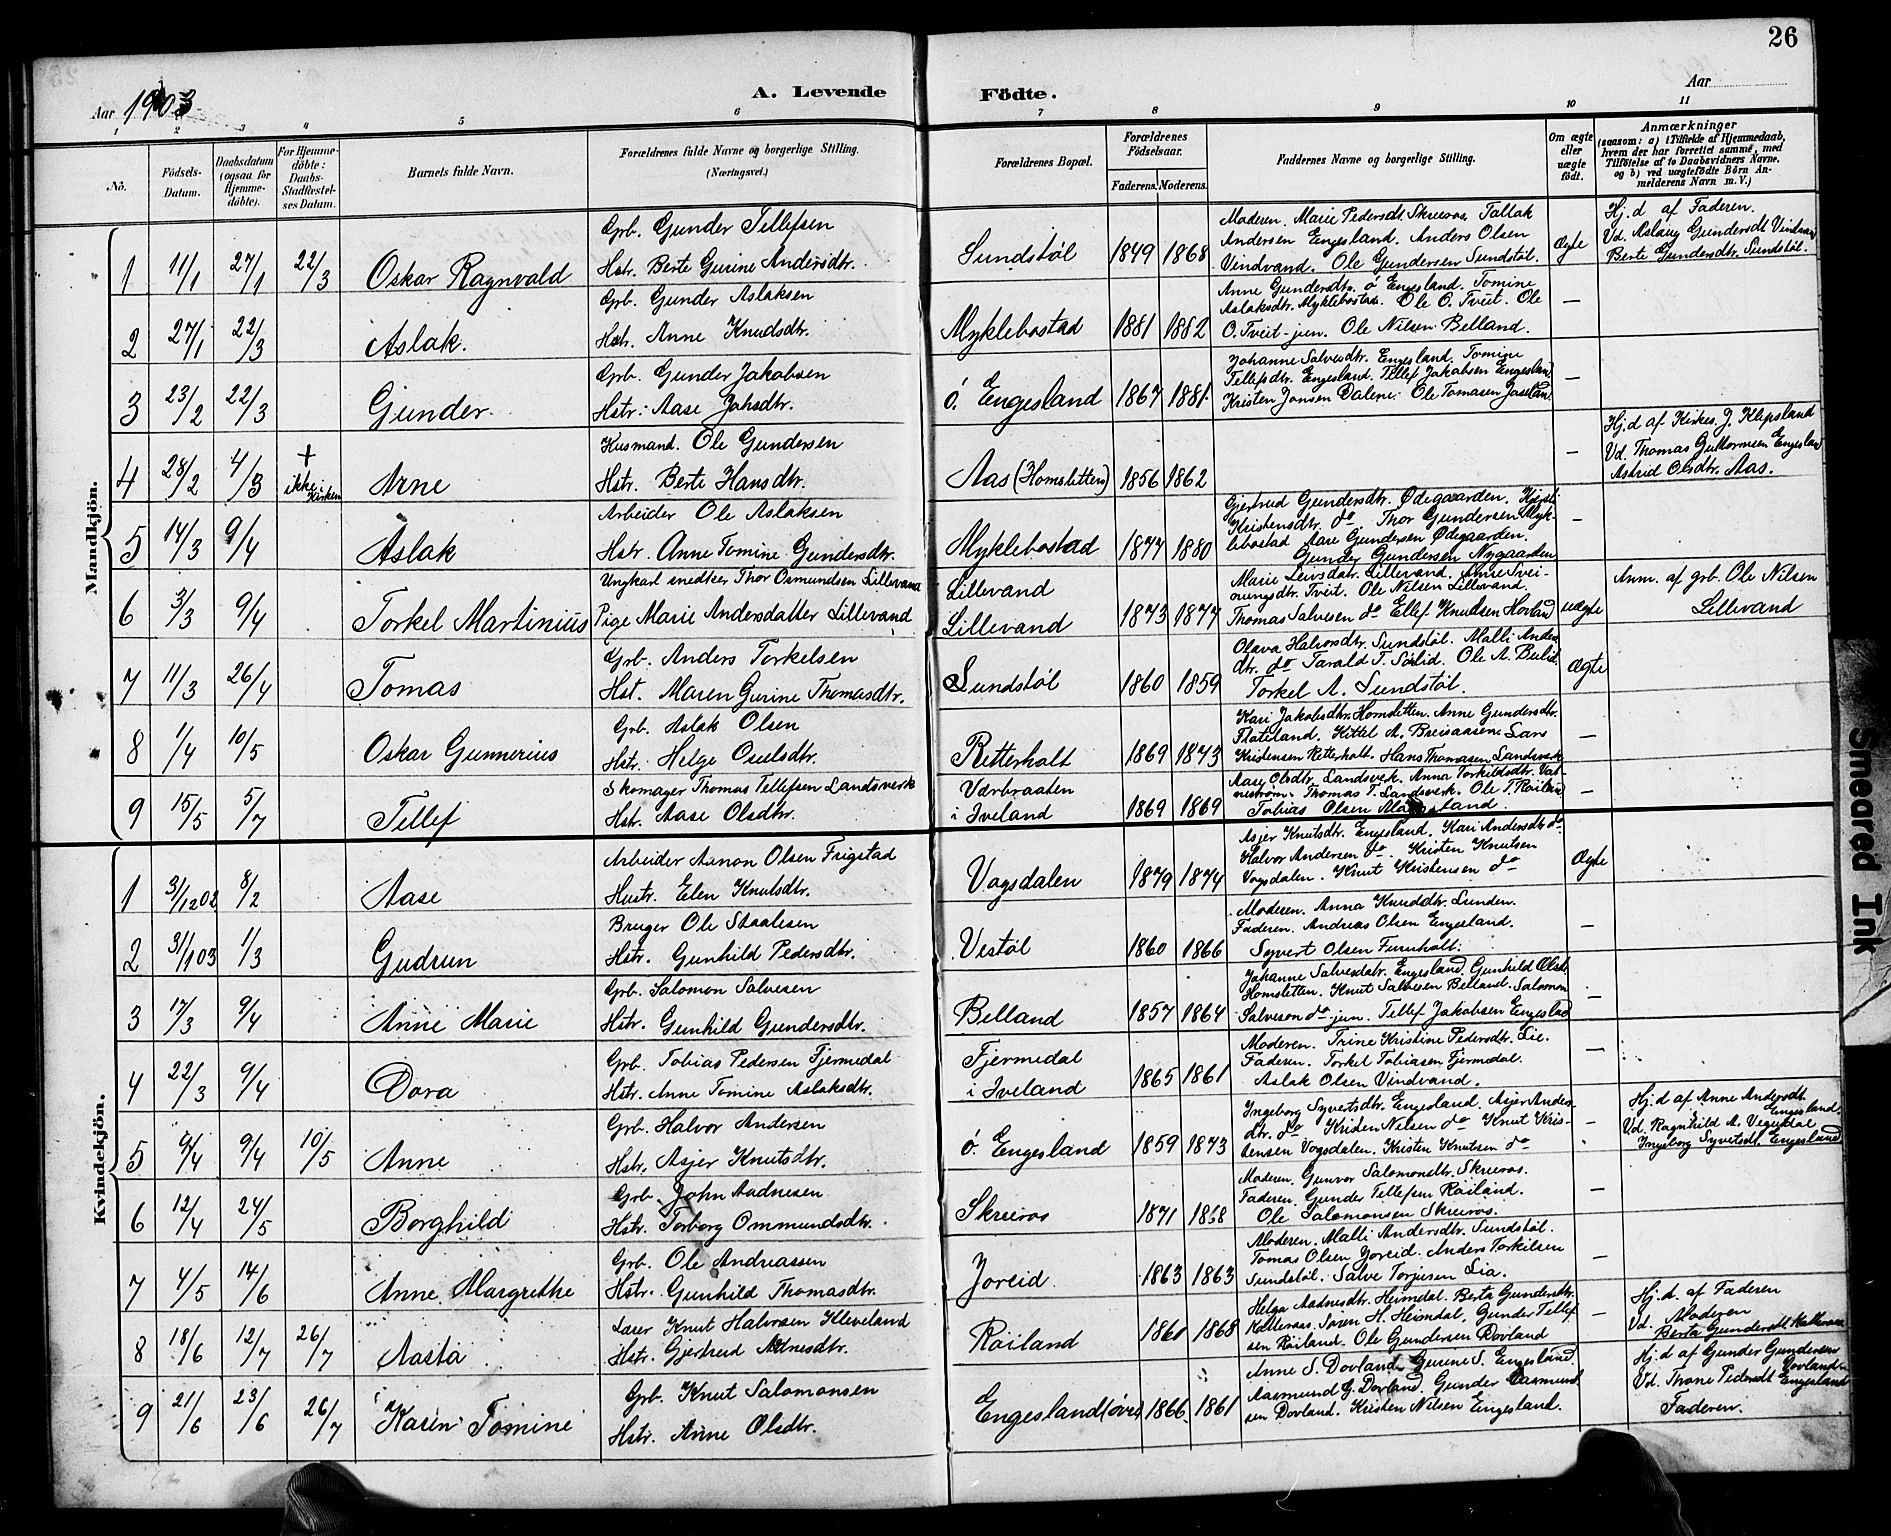 26
Aar 1903
A. Levende Födte.
Aar
1 2 3 4 5 6 7 8 9 10 11
No.
Födsels-Datum.
Daabsdatum (ogsaa for Hjemme-döbte).
For Hjemme-döbte: Daabs-Stadfæstel-ses Datum.
Barnets fulde Navn.
Forældrenes fulde Navne og borgerlige Stilling. (Næringsvei.)
Forældrenes Bopæl.
Forældrenes Födselsaar.
Faderens. Moderens.
Faddernes Navne og borgerlige Stilling.
Om ægte eller uægte födt.
Anmærkninger
(saasom: a) i Tilfælde af Hjemmedaab, hvem der har forrettet samme, med Tilföielse af to Daabsvidners Navne, og b) ved uægtefödte Börn An-melderens Navn m. V.)
Mandkjön.
1 11/1 27/1 22/3 Oskar Ragnvald
Grb. Gunder Tellefsen
Hstr. Berte Gurine Andersdtr.
Sundstøl 1849 1868
Moderen. Marie Pedersdt. Skreros. Tallak
Andersen Engesland. Anders Olsen
Vindvand. Ole Gundersen Sundstøl.
Ægte
Hj.d af Faderen.
Vd. Aslaug Gundersdt Vindvan
Berte Gundersdtr. Sundstøl.
2 27/1 22/3 Aslak.
Grb. Gunder Aslaksen
Hstr. Anne Knudsdtr.
Myklebostad 1881 1882
Anne Gundersdtr. ö Engesland. Tomine
Aslaksdtr. Myklebostad. Ole O. Tveit. Ole
O. Tveit jun. Ole Nilsen Belland.
—
3 23/2 22/3 Gunder.
Grb. Gunder Jakobsen
Hstr. Aase Johsdtr.
ö. Engesland 1867 1881
Johanne Salvesdtr. Engesland. Tomine
Tellefsdtr. Engesland. Tellef Jakobsen Engesland
Kristen Jonsen Dalene. Ole Tomasen
—
4 28/2 4/3 + ikke Kirken Arne
Husmand. Ole Gundersen
Hstr. Berte Hansdtr.
Aas (Homstetten) 1856 1862
—
Hj.d af Kirkes. J. Klepsland
Vd. Thomas Guttormsen Engeslan
Astrid Olsdtr. Aas.
5 14/3 9/4 Aslak
Arbeider Ole Aslaksen
Hstr. Anne Tomine Gundersdtr.
Myklebostad 1877 1880
Gjertrud Gundersdtr. Ødegaarden.
Kristensdtr. do. Thor Gundersen Myk-
lebostad Aase Gundersen Ødegaarden.
Gunder Gundersen Nygaarden
—
6 3/3 9/4 Torkel Martinius
Ungkarl snedker Thor Osmundsen Lillevand
Pige Marie Andersdatter Lillevand
Lillevand
Lillevand 1873 1877
Marie Lewsdatr. Lillevand. Anne Svei-
nungsdtr. Tveit. Ole Nilsen Lillevand.
Thomas Salvesen do Ellef Knudsen Hovland
uægte
Anm. af grb. Ole Nilsen
Lillevand
7 11/3 26/4 Tomas
Grb. Anders Torkelsen
Hst. Maren Gurine Thomasdtr.
Sundstøl 1860 1859
Olava Halvorsdtr. Sundstøl. Malli Anders
dtr. do Tarald T. Sølid. Ole A.
Torkel A. Sundstøl.
Ægte
8 1/4 10/5 Oskar Gunnerius
Grb. Aslak Olsen
Hstr. Helge Osulsdtr.
Retterholt 1869 1873
Kari Jakobsdtr. Homstetten. Anne Gundersdtr.
Flateland. Kittel A. Breisaasen. Lars
Kristensen Retterholt. Hans Thomasen Landsverk
—
9 15/5 5/7 Tellef
Skomager Thomas Tellefsen Landsverk
Hstr. Aase Olsdtr.
Vdrbraaten
i Iveland 1869 1869
Aase Olsdtr. Landsverk. Anna Torkildsdtr. Vat-
neström. Thomas T. Landsverk. Ole T. Røilan
Tobias Olsen
—
Kvindekjön.
1 3/12 02 8/2 Aase
Arbeider Aanon Olsen Frigstad
Hustr. Elen Knutsdtr.
Vagsdalen 1879 1874
Asjer Knutsdtr. Engesland. Kari Andersdtr do
Halvor Andersen do. Kristen Knutsen
Vagsdalen. Knut Kristensen do
Ægte
2 31/1 03 1/3 Gudrun
Bruger Ole Staalesen
Hstr. Gunhild Pedersdtr.
Vestøl 1860 1866
Moderen. Anna Knuddtr. Lunden.
Faderen. Andreas Olsen Engesland.
Syvert Olsen Furuholt.
—
3 17/3 9/4 Anne Marie
Grb. Salomon Salvesen
Hstr. Gunhild Gundersdtr.
Belland 1857 1864
Johanne Salvesdatr. Engesland. Gunhild Olsdt.
Homstetten. Knut Salvesen Belland. Salomon
Salveson do jun. Tellef Jakobsen Engeslad
—
4 22/3 9/4 Dora
Grb. Tobias Pedersen Fjermedal
Hstr. Anne Tomine Aslaksdtr.
Fjermedal
i Iveland 1865 1861
Moderen. Trine Kristine Pedersdtr. Lie.
Faderen. Torkel Tobiasen Fjermedal.
Aslak Olsen Vindvand.
—
5 9/4 9/4 10/5 Anne
Grb. Halvor Andersen
Hstr. Asjer Knutsdtr.
ö. Engesland 1859 1873
Ingeborg Syvertsdtr. Engesland. Asjer Anders-
dtr. do Kristen Nilsen do Knut Kris-
tensen Vagsdalen. Kristen Knutsen do
—
Hj.d af Anne Andersdt.
Engesland.
Vd. Ragnhild A. Vegusdal
Ingeborg Syvertsdt. Engesland
6 12/4 24/5 Borghild
Grb. John Aadnesen
Hstr. Torborg Ommundsdtr.
Skreros 1871 1868
Moderen. Gunvor Salomonsdtr. Skreros.
Faderen. Gunder Tellefsen Røiland.
Ole Salomonsen Skreros.
—
7 4/5 14/6 Anne Margrethe
Grb. Ole Andreassen
Hstr. Gunhild Thomasdtr.
Joreid. 1863 1863
Moderen. Malli Andersdtr. Sundstøl.
Tomas Olsen Joreid. Anders Torkilsen
Sundstøl. Salve Torjusen Lia.
—
8 18/6 12/7 26/7 Aasta
Lærer Knut Halvorsen Kleveland
Hstr. Gjertrud Adnesdtr.
Røiland 1860 1868
Helga Aadnesdtr. Heimdal. Berta Gundersdtr
Katteraas. Søren H. Heimdal. Gunder Tellef
sen Røiland. Ole Gundersen Dovland
—
Hj.d. af Faderen
Vd. Moderen
Berta Gundersdt. Katteraas
9 21/6 23/6 26/7 Karen Tomine
Grb. Knut Salomonsen
Hstr. Anne Olsdtr.
Engesland (øvre) 1866 1861
Anne S. Dovland. Gurine S. Engesland.
Aasmund G. Dovland. Gunder Aasmund
sen Dovland. Kristen Nilsen Engesland.
Hj.d af Gunder Gundersen
Dovland
Vd. Thone Pedersdt Engesland
Faderen.
Smeared Ink